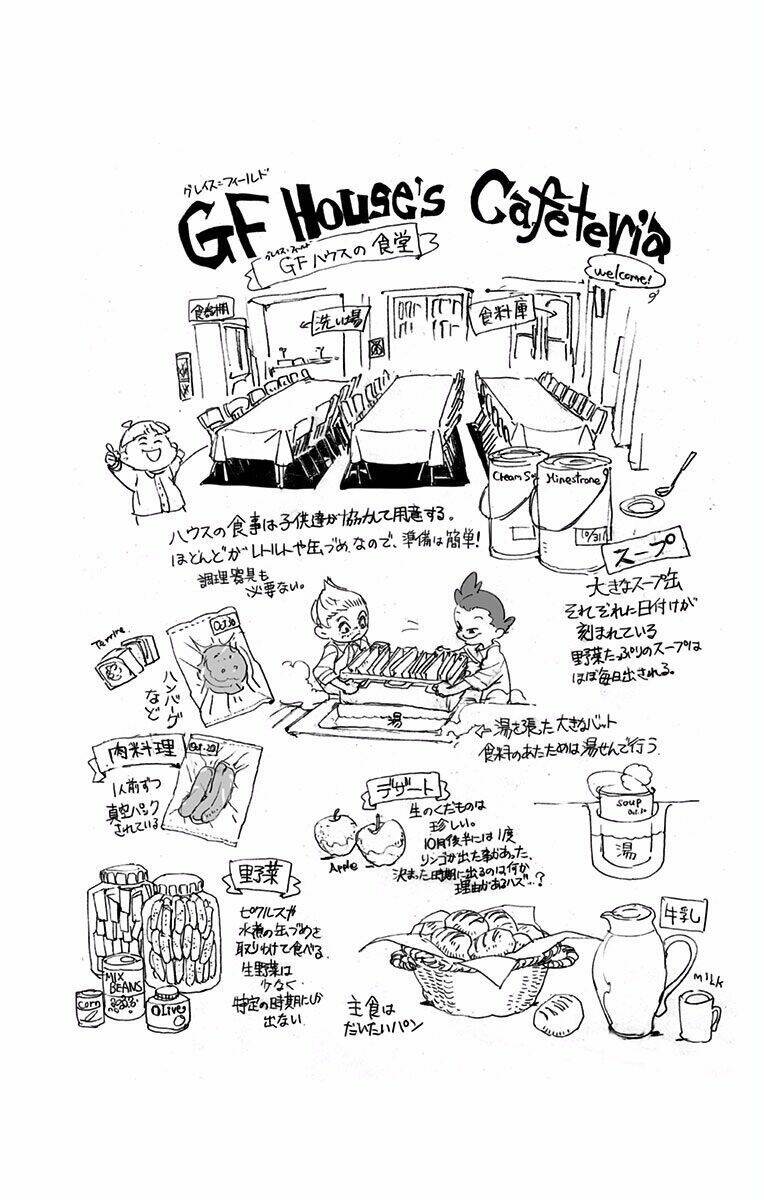 グレイス=フィールド
GF House's Cafeteria
グレイス=フィールド
GFハウスの食堂
welcome!
食器棚
←洗い場
食料庫→
Cream So
Minestrone
10/31
ハウスの食事は子供達が協力して用意する。
ほとんどがレトルトや缶づめなので、準備は簡単!
調理器具も
必要ない。
スープ
大きなスープ缶
それぞれに日付けが
刻まれている
野菜たっぷりのスープは
ほぼ毎日出される。
Terrine
Oct.30
ハンバーグ
など
湯
←湯を張った大きなバット
食料のあたためは湯せんで行う.
肉料理
Oct.20
1人前ずつ
真空パック
されている
デザート
生のくだものは
珍しい。
10月後半には1度
リンゴが出た事があった、
決まった時期に出るのは何か
理由があるハズ…?
Apple
soup
Oct.30
湯
野菜
ピクルスや
水煮の缶づめを
取りわけて食べる。
生野菜は
少なく
特定の時期にしか
出ない
MIX
BEANS
Corn
Olive
主食は
だいたいパン
牛乳
MILK